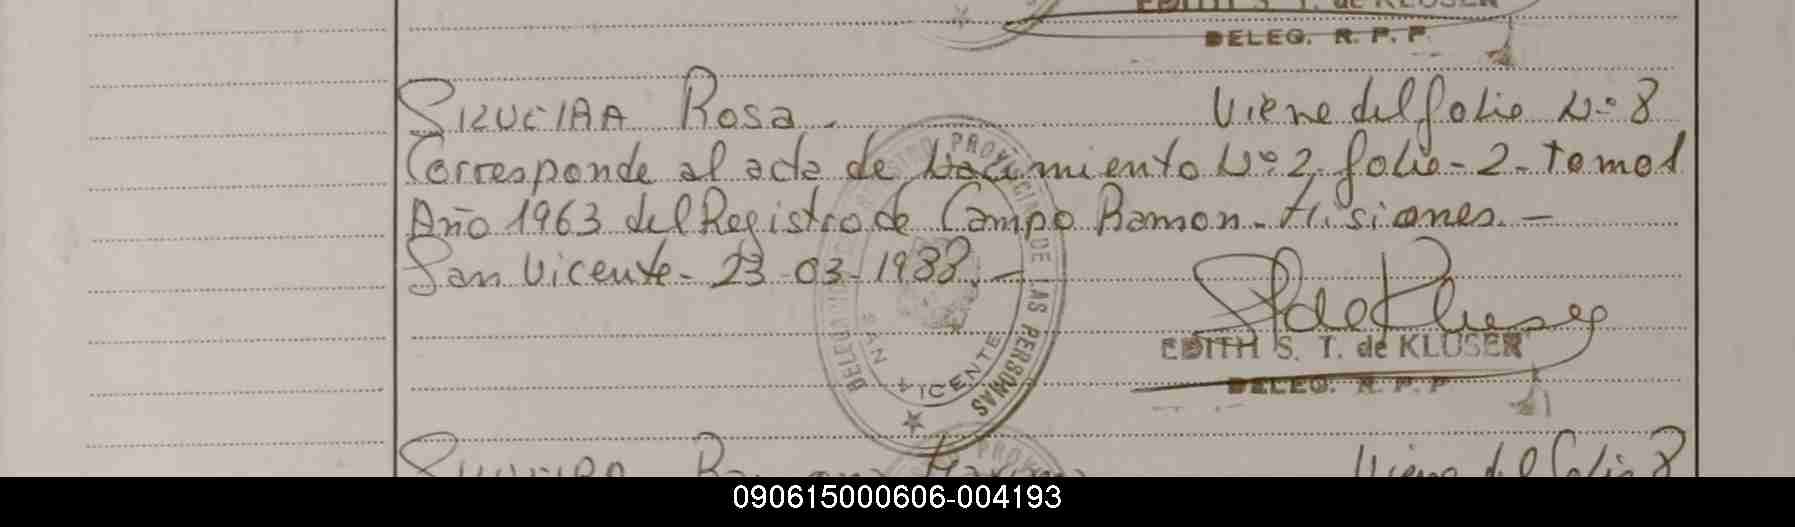 EDITH S. T. de KLUSER
DELEG. R. P. P.
Rosa. Viene del folio N.º 8
Corresponde al acta de Nacimiento N.º 2. folio - 2 - tomo 1
Año 1963 del Registro de Campo Ramon. Misiones. —
San Vicente - 23-03-1988. —
REGISTRO PROVINCIAL DE LAS PERSONAS
DELEGACION
SAN VICENTE
EDITH S. T. de KLUSER
DELEG. R. P. P.
Viene del folio 8
090615000606-004193